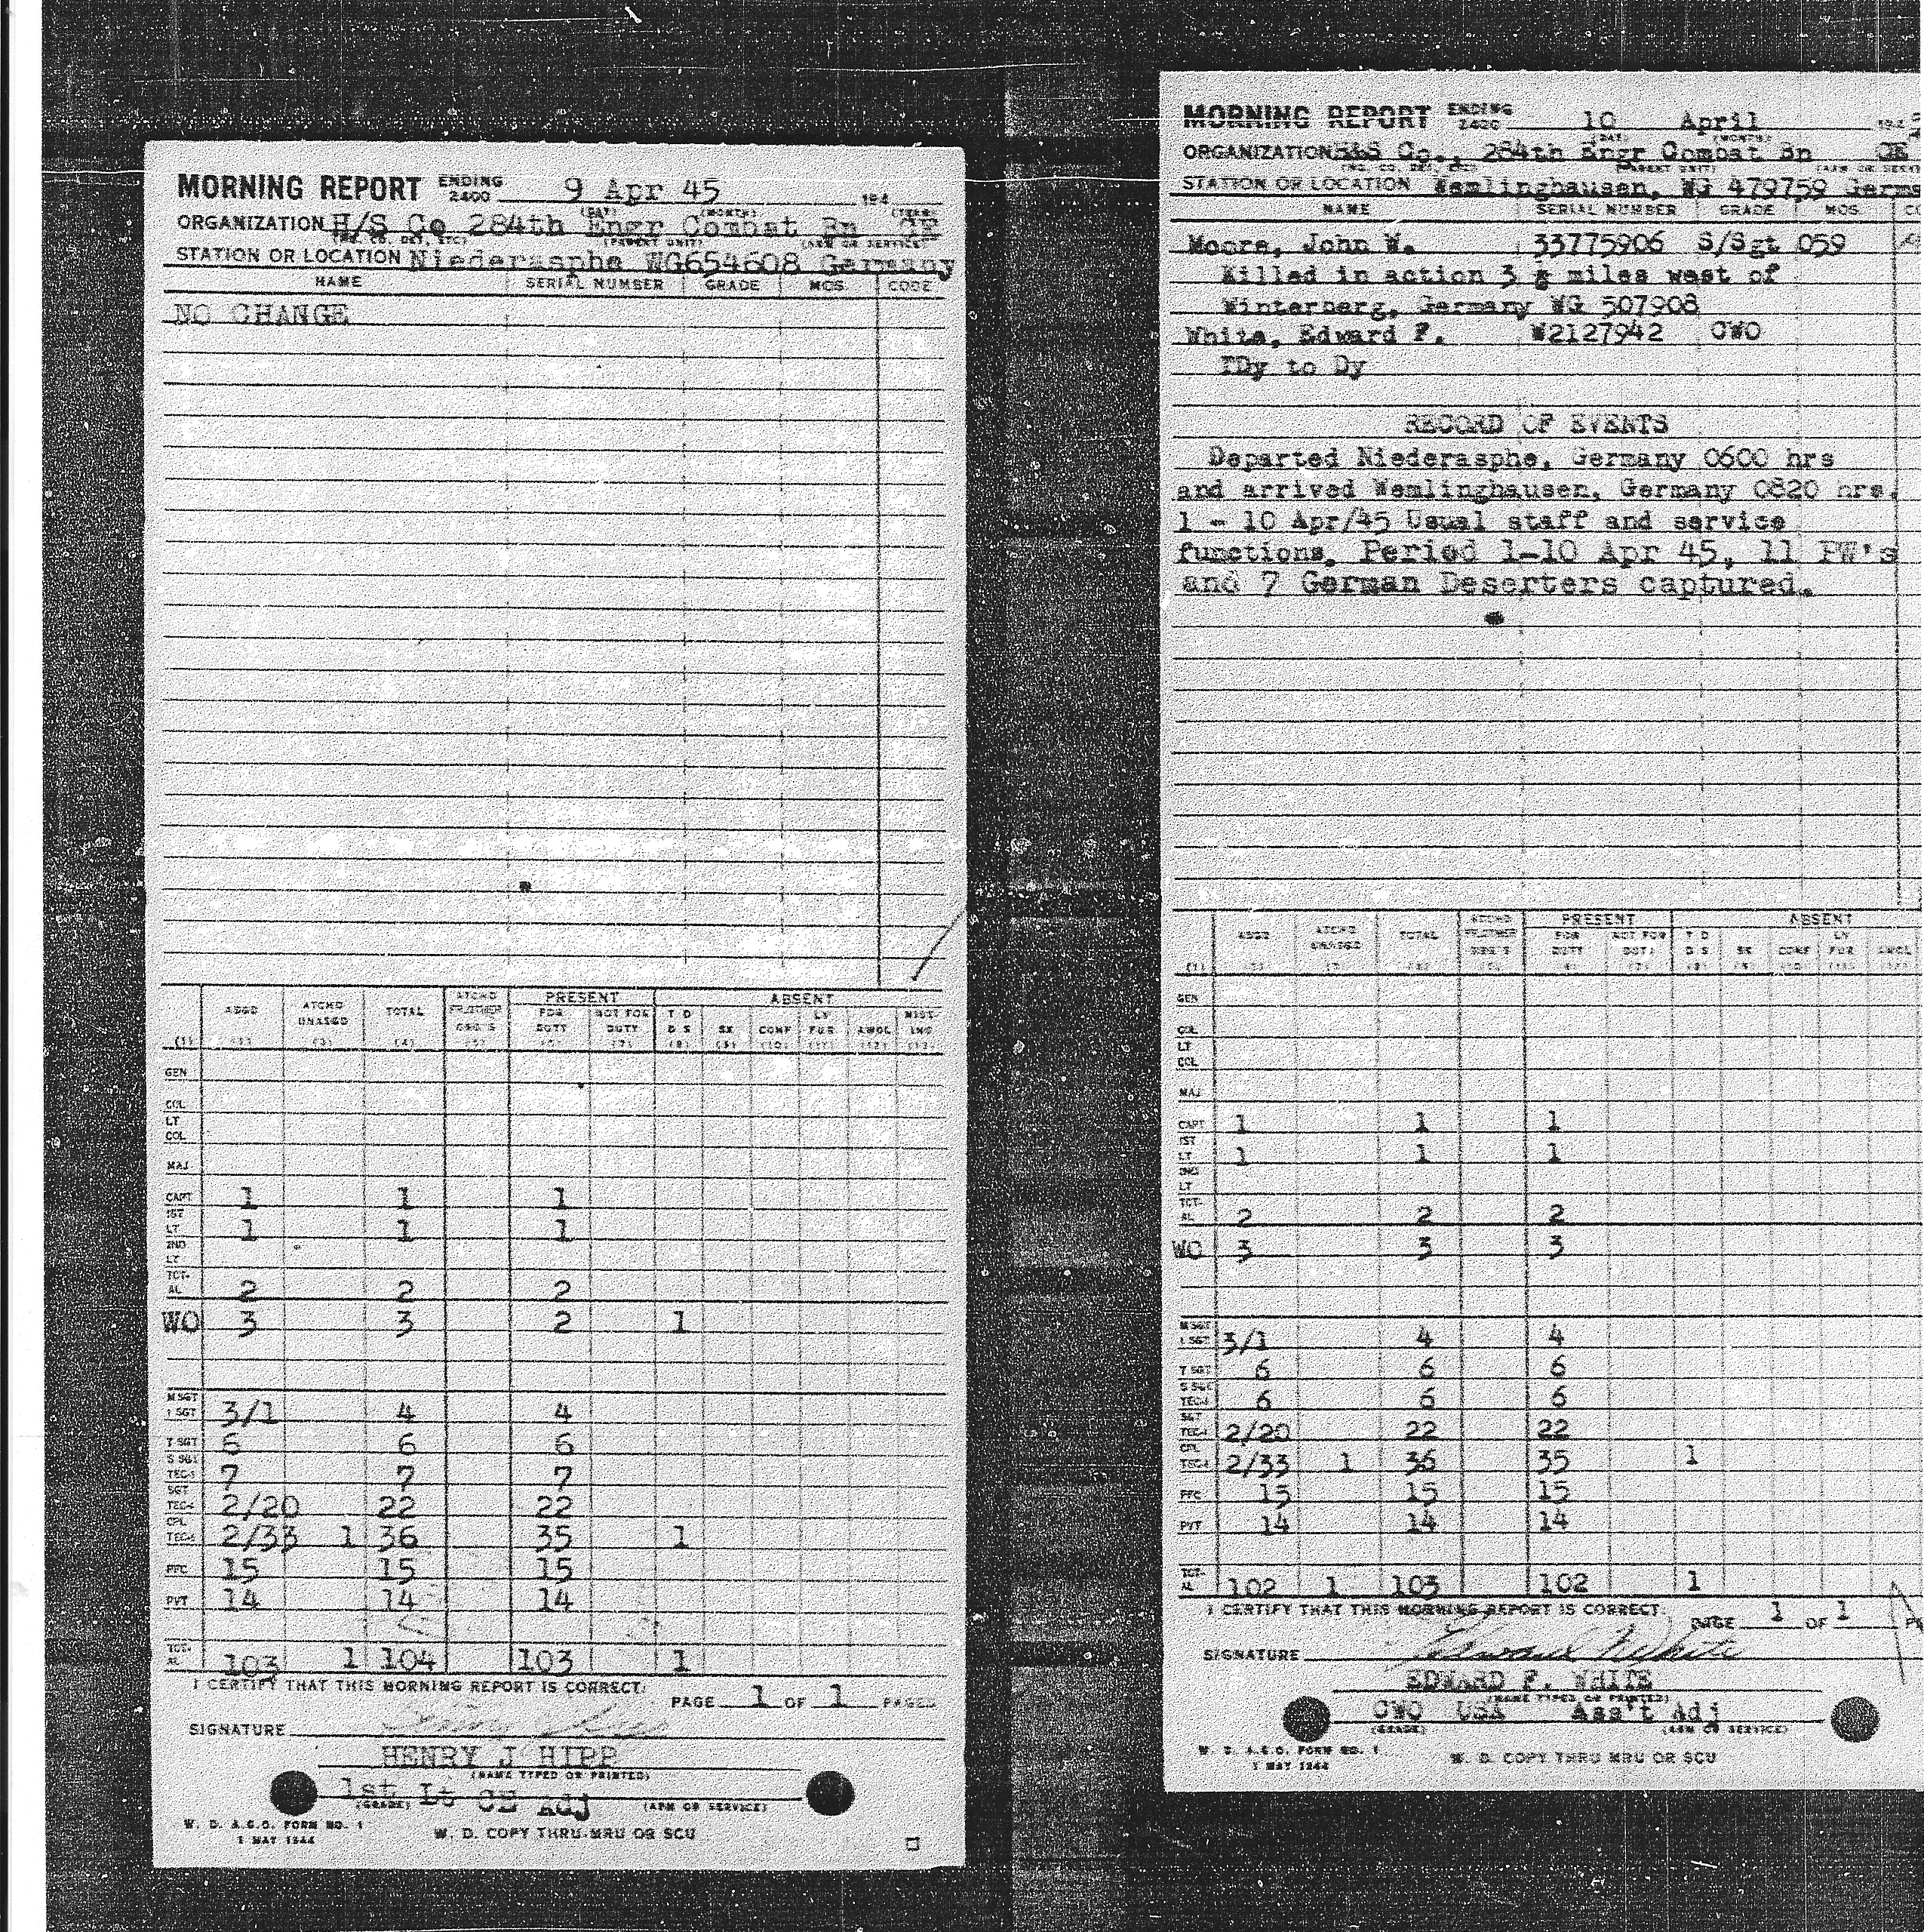 MORNING REPORT ENDING 2400 9 Apr 45 194
(DAY) (MONTH) (YEAR)
ORGANIZATION H/S Co 284th Engr Combat Bn CE
(HQ, CO, DET, ETC) (PARENT UNIT) (ARM OR SERVICE)
STATION OR LOCATION Niederasphe WG654608 Germany
NAME SERIAL NUMBER GRADE MOS CODE
NO CHANGE
(1) ASGD ATCHD UNASGD TOTAL ATCHD FR OTHER ORG'S PRESENT FOR DUTY NOT FOR DUTY ABSENT T D D S SK CONF LV FUR AWOL MISSING
(1) (2) (3) (4) (5) (6) (7) (8) (9) (10) (11) (12) (13)
GEN
COL
LT COL
MAJ
CAPT 1 1 1
1ST LT 1 1 1
2ND LT
TOTAL 2 2 2
WO 3 3 2 1
M SGT 1 SGT 3/1 4 4
T SGT 6 6 6
S SGT TEC-3 7 7 7
SGT TEC-4 2/20 22 22
CPL TEC-5 2/33 1 36 35 1
PFC 15 15 15
PVT 14 14 14
TOTAL 103 1 104 103 1
I CERTIFY THAT THIS MORNING REPORT IS CORRECT.
PAGE 1 OF 1 PAGES
SIGNATURE
HENRY J HIPP
(NAME TYPED OR PRINTED)
1st Lt CE Adj
(GRADE) (ARM OR SERVICE)
W. D. A.G.O. FORM NO. 1
1 MAY 1944
W. D. COPY THRU MRU OR SCU
MORNING REPORT ENDING 2400 10 April 194
(DAY) (MONTH)
ORGANIZATION H&S Co., 284th Engr Combat Bn CE
(HQ, CO, DET, ETC) (PARENT UNIT) (ARM OR SERVI
STATION OR LOCATION Wemlinghausen, WG 479759 Germa
NAME SERIAL NUMBER GRADE MOS CO
Moore, John W. 33775906 S/Sgt 059
Killed in action 3 ½ miles west of
Winterberg, Germany WG 507908
White, Edward F. W2127942 CWO
TDy to Dy
RECORD OF EVENTS
Departed Niederasphe, Germany 0600 hrs
and arrived Wemlinghausen, Germany 0820 hrs.
1 - 10 Apr/45 Usual staff and service
functions. Period 1-10 Apr 45, 11 PW's
and 7 German Deserters captured.
(1) ASGD ATCHD UNASGD TOTAL ATCHD FR OTHER ORG'S PRESENT FOR DUTY NOT FOR DUTY ABSENT T D D S SK CONF LV FUR AWOL
(1) (2) (3) (4) (5) (6) (7) (8) (9) (10) (11) (12)
GEN
COL
LT COL
MAJ
CAPT 1 1 1
1ST LT 1 1 1
2ND LT
TOTAL 2 2 2
WO 3 3 3
M SGT 1 SGT 3/1 4 4
T SGT 6 6 6
S SGT TEC-3 6 6 6
SGT TEC-4 2/20 22 22
CPL TEC-5 2/33 1 36 35 1
PFC 15 15 15
PVT 14 14 14
TOTAL 102 1 103 102 1
I CERTIFY THAT THIS MORNING REPORT IS CORRECT.
PAGE 1 OF 1 P
SIGNATURE Edward F White
EDWARD F. WHITE
(NAME TYPED OR PRINTED)
CWO USA Ass't Adj
(GRADE) (ARM OR SERVICE)
W. D. A.G.O. FORM NO. 1
1 MAY 1944
W. D. COPY THRU MRU OR SCU